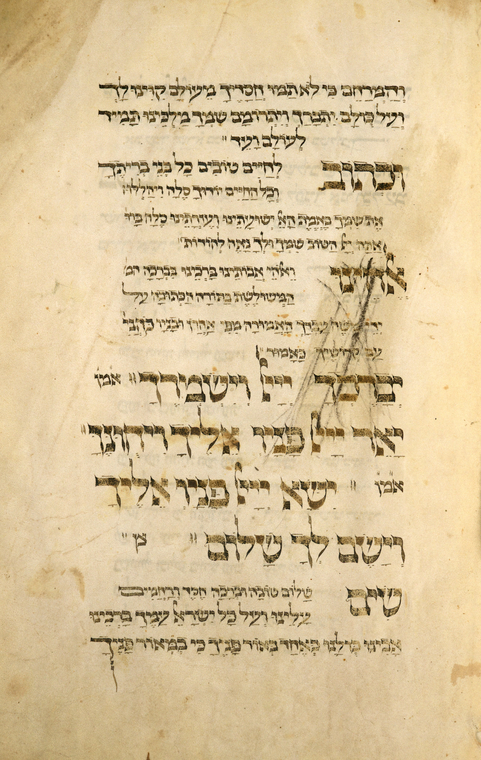 והמרחם כי לא תמו חסדיך מעולם קוינו לך
ועל כולם יתברך ויתרומם שמך מלכינו תמיד
לעולם ועד
וכתוב לחיים טובים כל בני בריתך
וכל החיים יודוך סלה ויהללו
את שמך באמת האל ישועתינו ועזרתינו סלה ברוך
אתה יי הטוב שמך ולך נאה להודות
אלהינו ואלהי אבותינו ברכינו בברכה המ
המשולשת בתורה הכתובה על
ידי משה עבדך האמורה מפי אהרן ובניו כהני
עם קדושיך כאמור
יברכך ייי וישמרך אמן
יאר ייי פניו אליך ויחונך
אמן ישא ייי פניו אליך
וישם לך שלום
שים שלום טובה וברכה חסד ורחמים
עלינו ועל כל ישראל עמך ברכינו
אבינו כולנו כאחד באור פניך כי במאור פניך